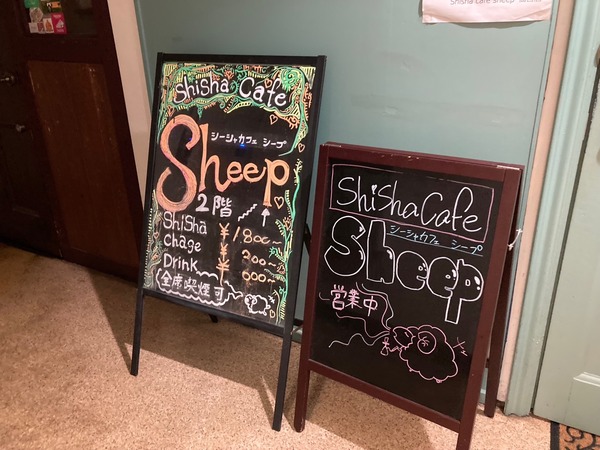 Shisha Cafe sheep
Shisha Cafe
シーシャカフェ シープ
Sheep
2階
Shisha ¥1800~
Chage ¥300~
Drink ¥600~
全席喫煙可
Shisha Cafe
シーシャカフェ シープ
Sheep
営業中